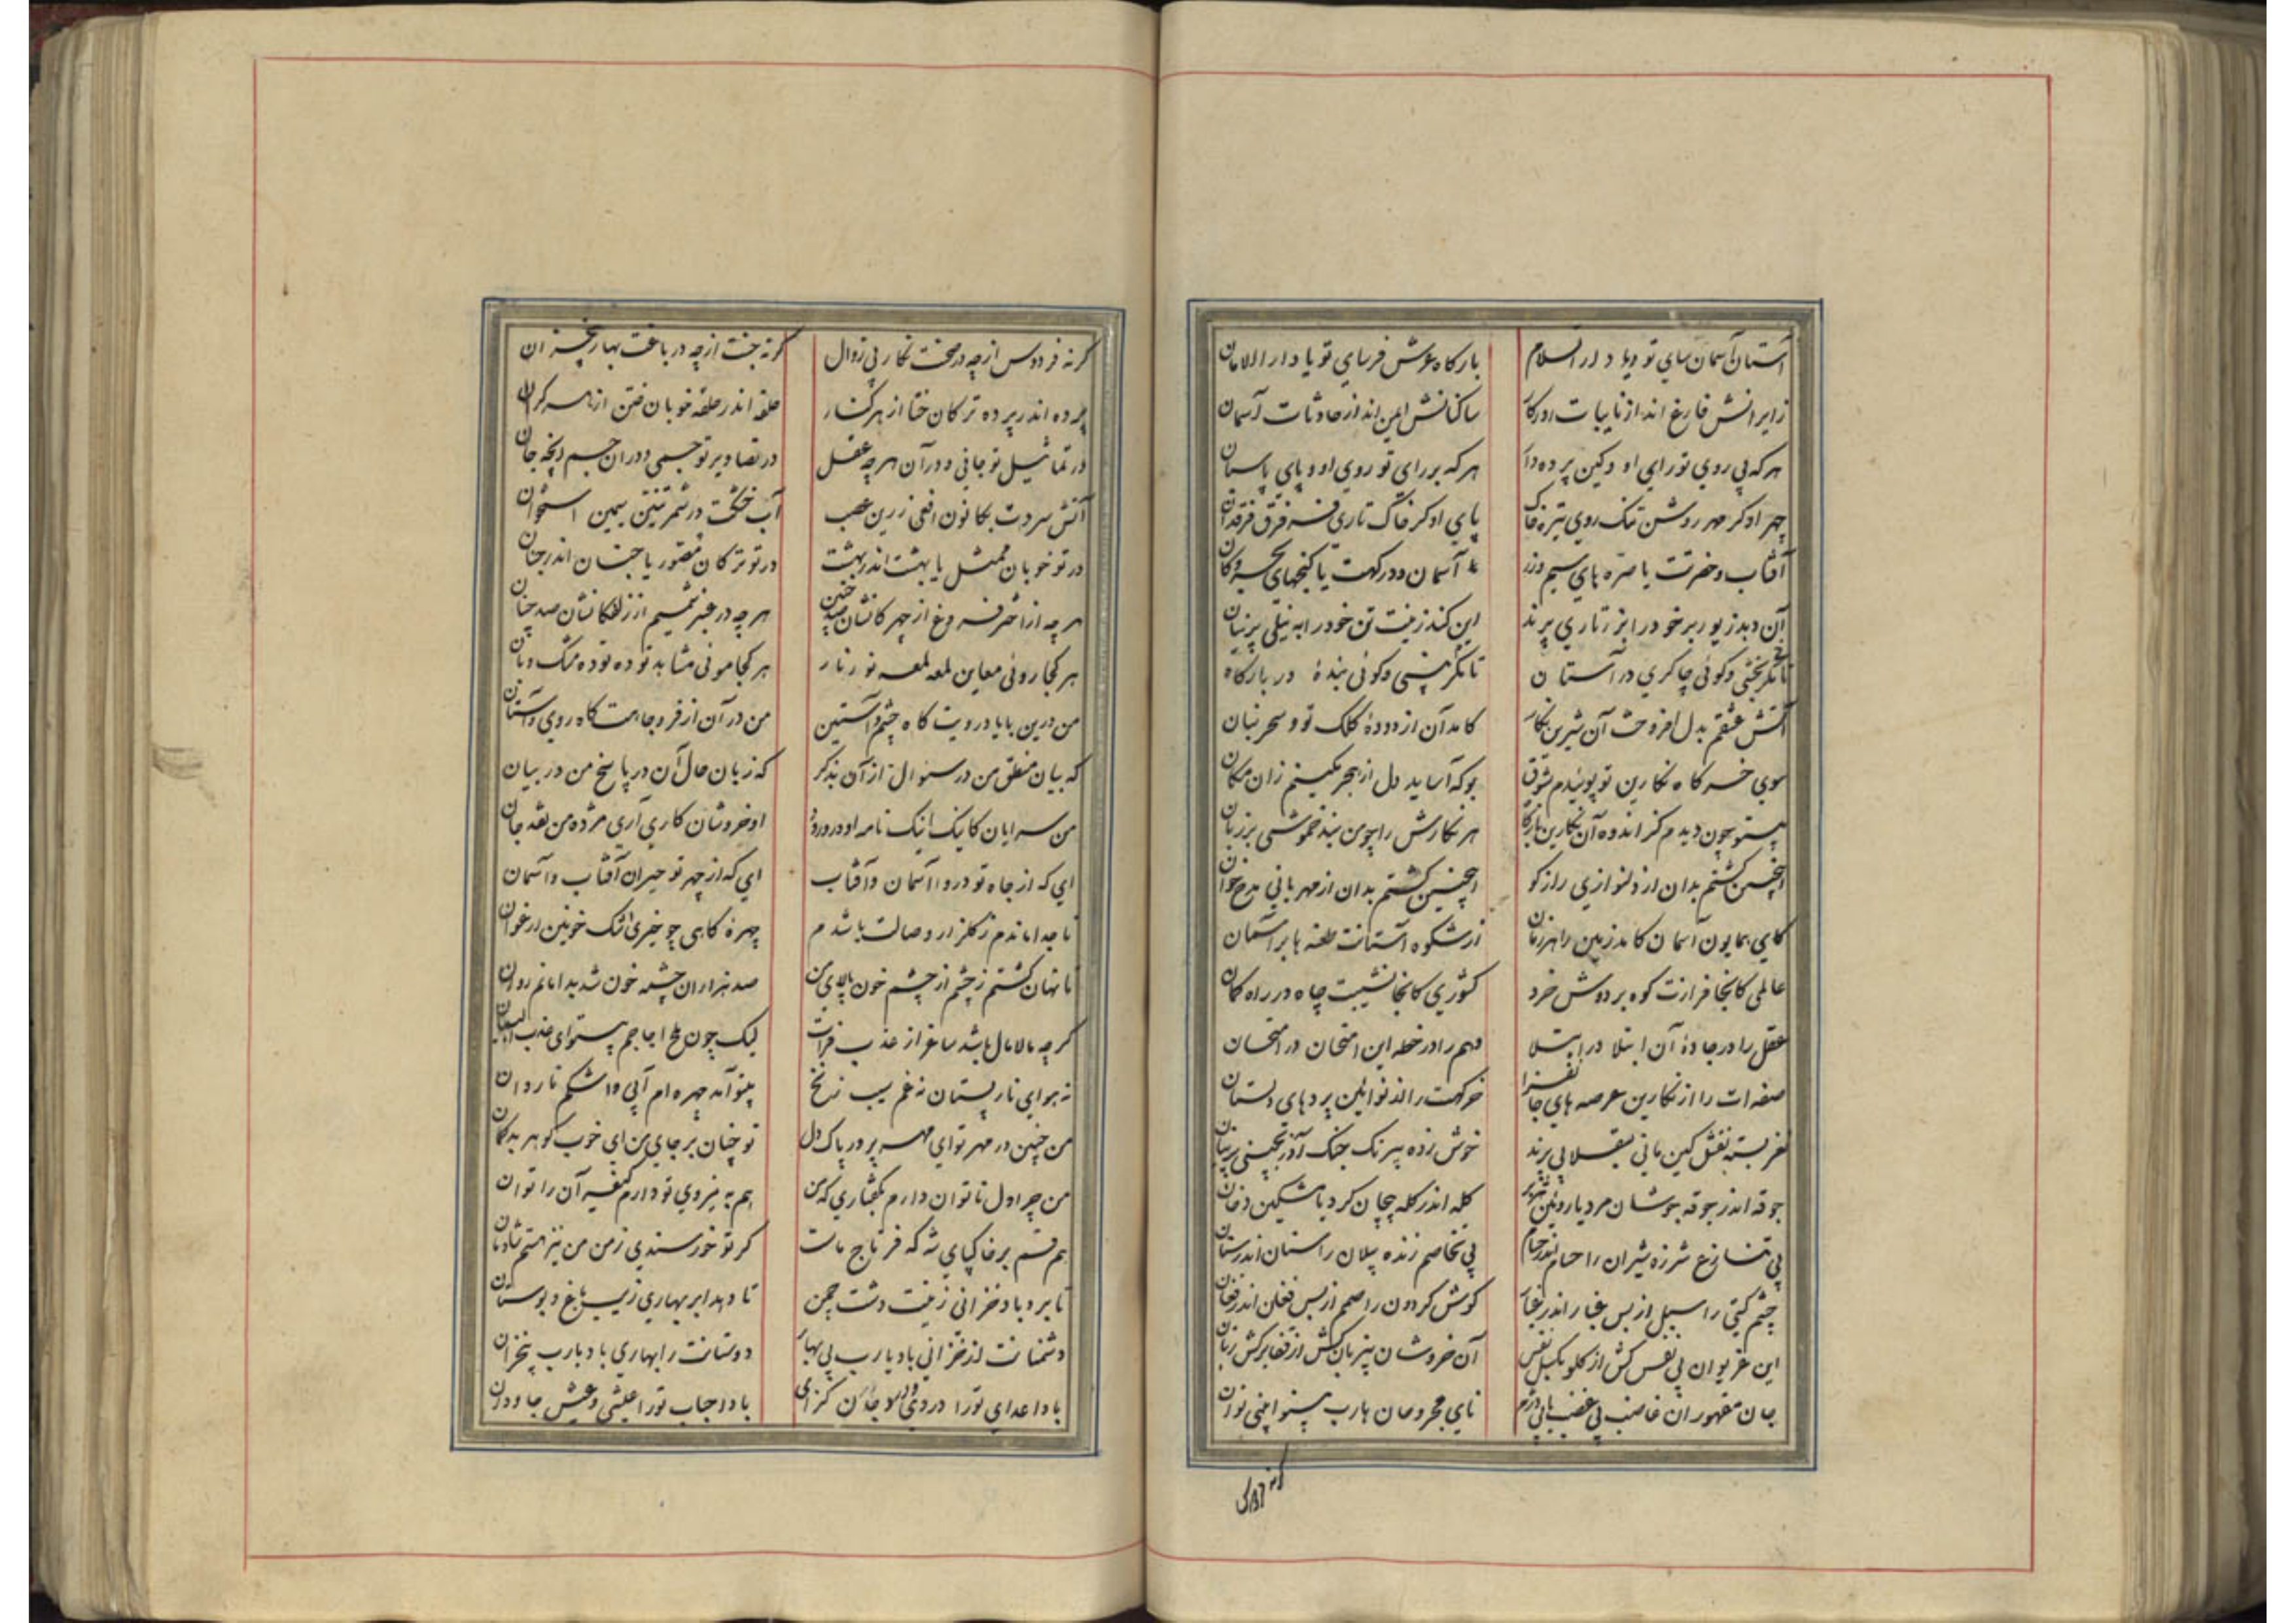 آستان آسمان سای تو و یا دار السلام بارکاه عرش فرسای تو یا دار الامان
زایرانش فارغ اند از نایبات ساکنانش ایمن اند از حادثات آسمان
هر که بی روی تو رای او وکین پرده در هر که بر رای تو روی او و پای پاسبان
چهر او کر مهر روشن تنک روی تیره خاک پای او کر خاک تاری فرق فرقدان
آفتاب و حضرتت یا صره های سیم و زر آسمان و درکهت یا کنجهای بحر و کان
آن دهد زیور بر خود را بزرتاری پرند این کند زینت تن خود را به نیلی پرنیان
تا نکر بخشی و کوئی چاکری در آستان تا نکر بینی و کوئی بنده در بارکاه
آتش عشقم بدل افروخت آن شیرین نکار کامد آن از دوده کلک تو و سحر بنان
سوی خرکاه نکارین تو پوئیدم شوق بو که آساید دل از هجر مکینم زان مکان
بیتو چون دیدم کز اندوه آن نکارین بارکاه هر نکارش را چو من بند خموشی بر زبان
اینچنین کشتم بدان از دلنوازی رازکو اینچنین کشتم بدان از مهربانی مدح خوان
کای همایون آسمان کامد زمین از شکوه آستانت طعنه ها بر آسمان
عالمی کانجا فرازت کوه بر دوش خرد کشوری کانجا نشیبت چاه در راه کمان
عقل را در جاده آن ابتلا در ابتلا وهم را در خطه این امتحان در امتحان
صفه ات را از نکارین عرصه های جانفزا خرکهت را اندر پردهای دلستان
نغز بسته نقش کین مانی پرند خوش زده نیرنک جنک آزر پرنیان
جوقه اندر جوقه جوشان مرد یا کله اندر کله پیچان کرد یا مشکین دخان
پی تنازع شرزه شیران را حسام اندر حسام پی تخاصم زنده پیلان را سنان اندر سنان
چشم کیتی را سبل از بس غبار اندر غبار کوش کردون را صمم از بس فغان اندر فغان
این غریوان بی نفس کش از کلو نفس آن خروشان بی زبان کش از قفا بر کش زبان
جان مقهوران غاضب بی غضب نای مجروحان یا رب بیتوا
کرنه
کرنه فردوس از چه در صحنت نکار بی زوال کرنه جنت از چه در باغت بهار بیخزان
پرده اندر پرده ترکان ختا از هر کنار حلقه اندر حلقه خوبان ختن از هر کران
در تماثیل تو جانی و در آن هر چه عقل در تصاویر تو جسمی و در آن جسم جان
آتش سردت بکانون افعی زرین عصب آب خشکت در شمر تنین سیمین استخوان
در تو خوبان ممثل یا بهشت اندر بهشت در تو ترکان مصور یا جنان اندر جنان
هر چه از اختر فروغ از چهرکانشان هر چه در عنبر شمیم از زلفکانشان صد چنان
هر کجا روئی معاین لمعه لمعه نور و نار هر کجا موئی مشاهد توده توده مشک و بان
من درین با یاد رویت کاه چشم و آستین من در آن از فر و جاهت کاه روی و آستان
که بیان منطق من در سئوال از آن بذکر که زبان حال آن در پاسخ من در بیان
من سرایان کاینک اینک نامه او در ورود او خروشان کاری آری مژده من نقد جان
ای که از جاه تو دروا آسمان و آفتاب ای که از چهر تو حیران آفتاب و آسمان
تا جدا ماندم ز کلزار وصالت باشدم چهره کاهی چو خیری اشک خونین ارغوان
تا نهان کشتم ز چشم از چشم خون پالای من صد هزاران چشمه خون شد بدامانم روان
کر چه مالامال باشد ساغر از عذب فرات لیک چون ملح اجاجم بیتو ای عذب البیان
نه هوای نار پستان نه غم سیب زنخ بیتو آمد چهره ام آبی و اشکم ناروان
من چنین در مهر تو ای مهر پرور پاک دل تو چنان بر جای من ای خوب کوهر بدکمان
من چرا دل ناتوان دارم بکفتاری که من هم به نیروی تو دارم کیفر آن را توان
هم قسم بر خاکپای شه که فر تاج ماست کر تو خورسندی ز من من نیز هستم شادمان
تا برد باد خزانی زینت دشت چمن تا دهد ابر بهاری زیب باغ و بوستان
دشمنانت از خزانی باد یا رب بی بهار دوستانت را بهاری باد یا رب بیخزان
باد اعدای تو را دردی و جان کزای باد احباب تو را عیشی و عیش جاودان